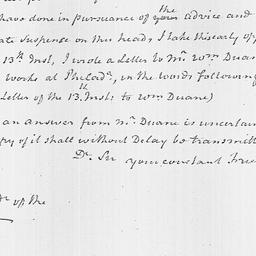 the
have done in pursuance of your advice and
ate suspense on this head; I take this early op
13th Inst, I wrote a Letter to Mr. Wm Duan
works at Philada, in the words following
Letter of the 13.th Inst: to Wm Duane)
an answer from Mr. Duane is uncertain
opy of it shall without Delay be transmitt
Dr Sir your constant Frien
of the